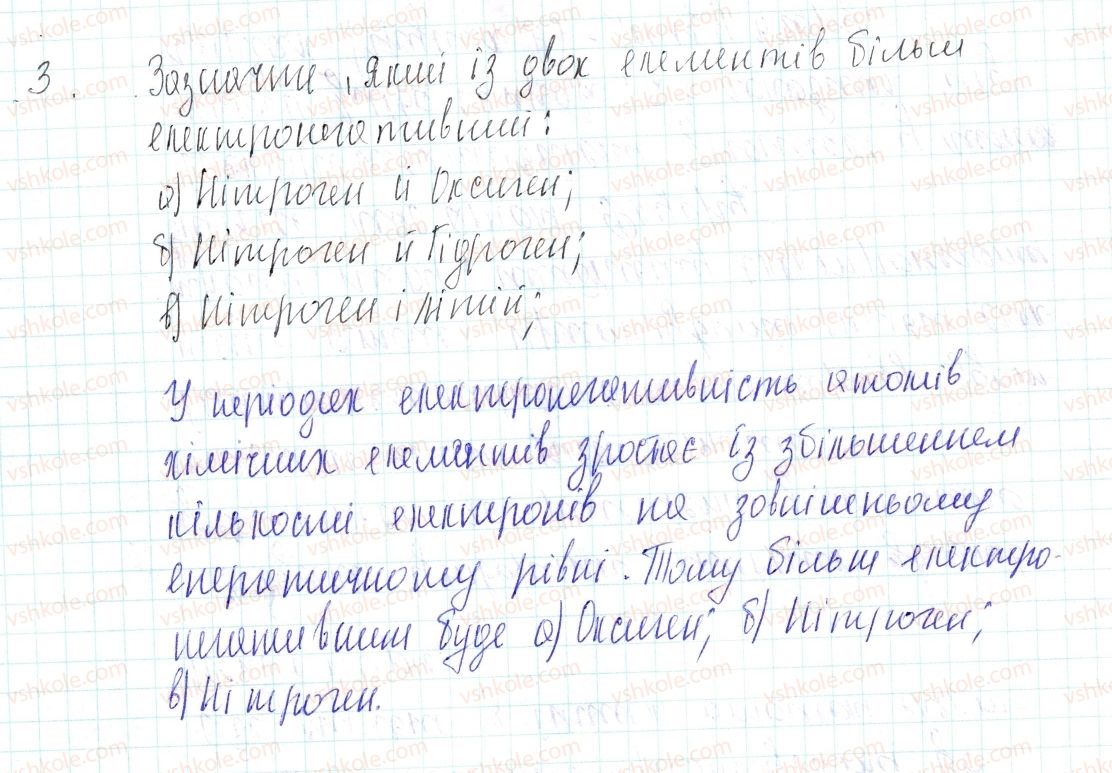 3. Зазначте, який із двох елементів більш
електронегативний:
а) Нітроген й Оксиген;
б) Нітроген й Гідроген;
в) Нітроген і Літій;
У періодах електронегативність атомів
хімічних елементів зростає із збільшенням
кількості електронів на зовнішньому
енергетичному рівні. Тому більш електро-
негативним буде а) Оксиген; б) Нітроген;
в) Нітроген.